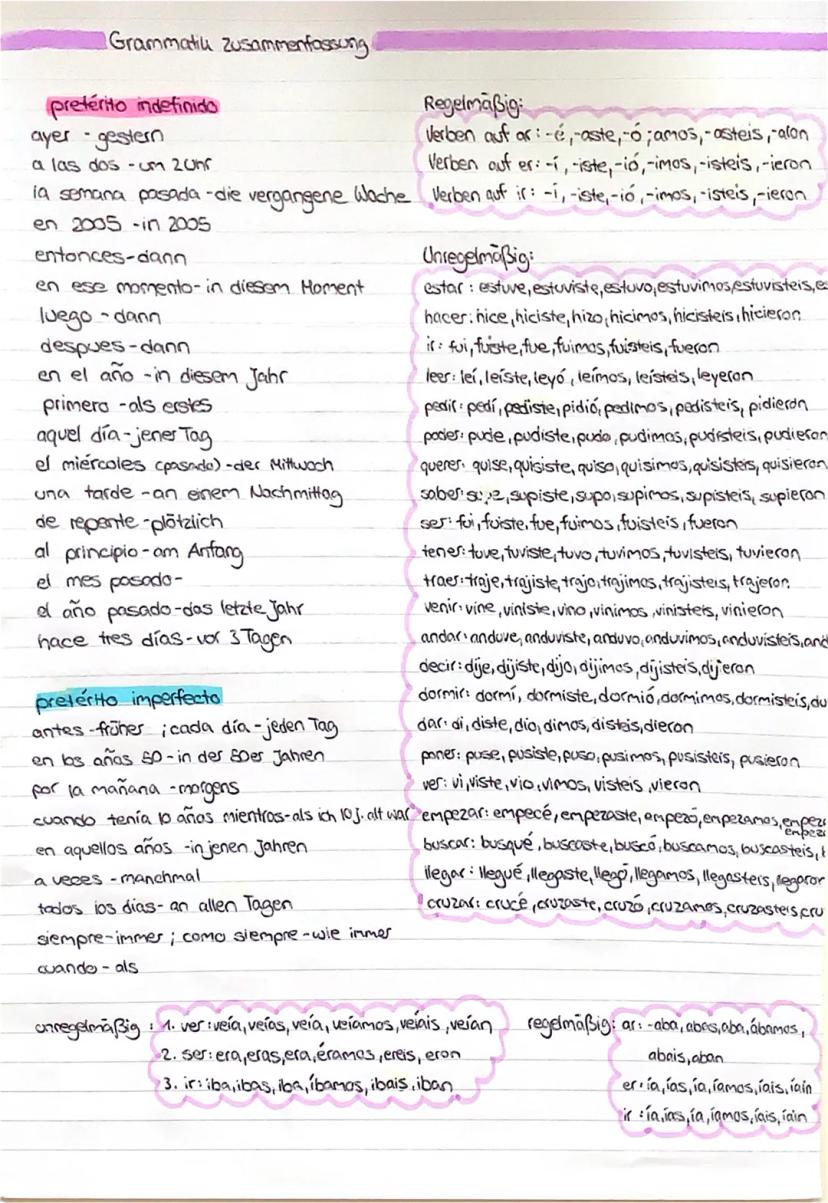 Grammatik Zusammenfassung
pretérito indefinido
ayer - gestern
a las dos - um 2 Uhr
la semana pasada - die vergangene Woche
en 2005 - in 2005
entonces - dann
en ese momento - in diesem Moment
luego - dann
despues - dann
en el año - in diesem Jahr
primero - als erstes
aquel día - jener Tag
el miércoles (pasado) - der Mittwoch
una tarde - an einem Nachmittag
de repente - plötzlich
al principio - am Anfang
el mes pasado -
el año pasado - das letzte Jahr
hace tres días - vor 3 Tagen
pretérito imperfecto
antes - früher ; cada día - jeden Tag
en los años 50 - in der 50er Jahren
por la mañana - morgens
cuando tenía 10 años mientras - als ich 10 J. alt war
en aquellos años - in jenen Jahren
a veces - manchmal
todos los días - an allen Tagen
siempre - immer ; como siempre - wie immer
cuando - als
Regelmäßig:
Verben auf ar: -é, -aste, -ó, ; amos, -asteis, -aron
Verben auf er: -í, -iste, -ió, -imos, -isteis, -ieron
Verben auf ir: -í, -iste, -ió, -imos, -isteis, -ieron
Unregelmäßig:
estar: estuve, estuviste, estuvo, estuvimos, estuvisteis, es
hacer: hice, hiciste, hizo, hicimos, hicisteis, hicieron
ir: fui, fuiste, fue, fuimos, fuisteis, fueron
leer: leí, leíste, leyó, leímos, leísteis, leyeron
pedir: pedí, pediste, pidió, pedimos, pedisteis, pidieron
poder: pude, pudiste, pudo, pudimos, pudisteis, pudieron
querer: quise, quisiste, quiso, quisimos, quisisteis, quisieron
saber: supe, supiste, supo, supimos, supisteis, supieron
ser: fui, fuiste, fue, fuimos, fuisteis, fueron
tener: tuve, tuviste, tuvo, tuvimos, tuvisteis, tuvieron
traer: traje, trajiste, trajo, trajimos, trajisteis, trajeron
venir: vine, viniste, vino, vinimos, vinisteis, vinieron
andar: anduve, anduviste, anduvo, anduvimos, anduvisteis, and
decir: dije, dijiste, dijo, dijimos, dijisteis, dijeron
dormir: dormí, dormiste, dormió, dormimos, dormisteis, du
dar: di, diste, dio, dimos, disteis, dieron
poner: puse, pusiste, puso, pusimos, pusisteis, pusieron
ver: vi, viste, vio, vimos, visteis, vieron
empezar: empecé, empezaste, empezó, empezamos, empeza
empeza
buscar: busqué, buscaste, buscó, buscamos, buscasteis,
llegar: llegué, llegaste, llegó, llegamos, llegasteis, llegaron
cruzar: crucé, cruzaste, cruzó, cruzamos, cruzasteis, cru
unregelmäßig : 1. ver: veía, veías, veía, veíamos, veíais, veían
2. ser: era, eras, era, éramos, ereis, eron
3. ir: iba, ibas, iba, íbamos, ibais, iban
regelmäßig: ar: -aba, abas, aba, ábamos,
abais, aban
er: ía, ías, ía, íamos, íais, íain
ir: ía, ías, ía, íamos, íais, íain